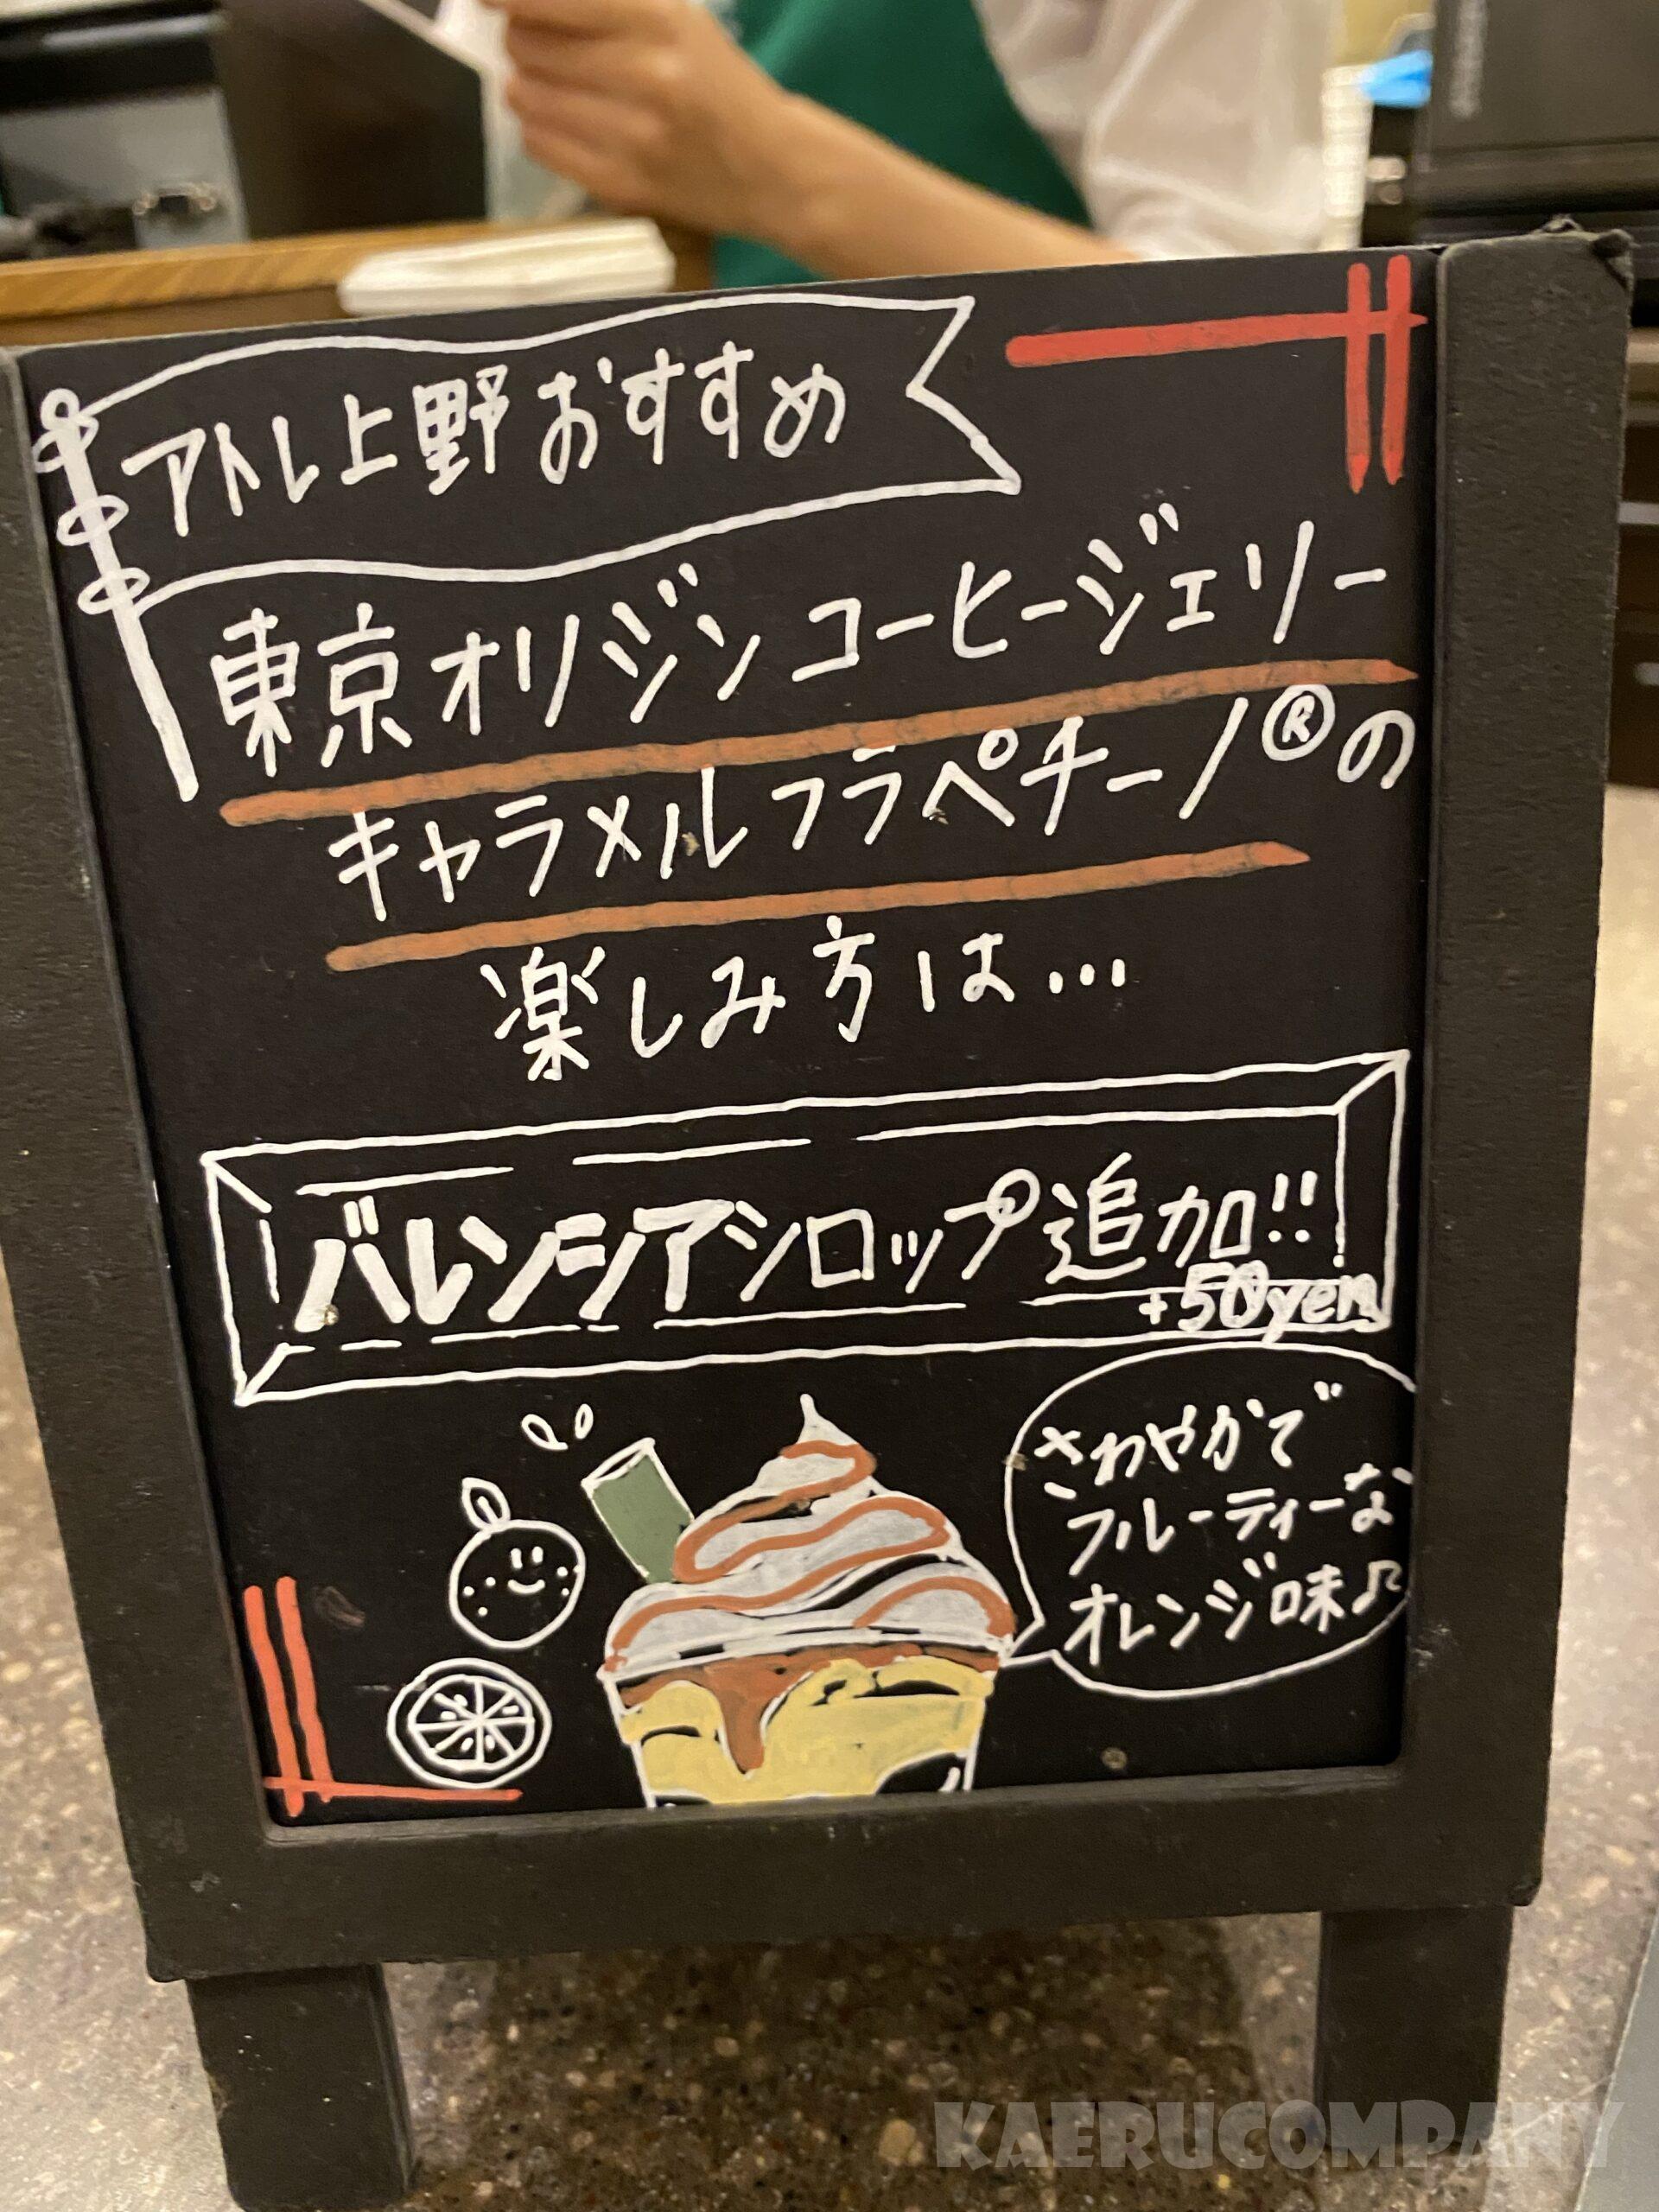 アトレ上野おすすめ
東京オリジンコーヒージェリー
キャラメルフラペチーノ®の
楽しみ方は...
バレンシアシロップ追加!!
+50yen
さわやかで
フルーティーな
オレンジ味♪
KAERUCOMPANY